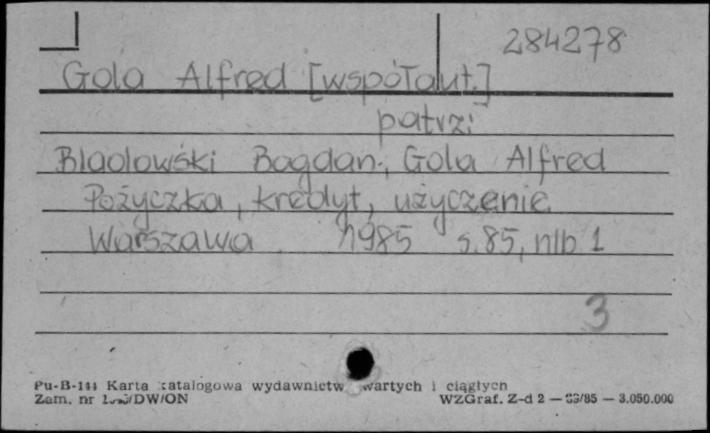 284278
Gola Alfred [współaut.]
patrz:
Bladowski Bogdan, Gola Alfred
Pożyczka, kredyt, użyczenie
Warszawa 1985 s. 85, nlb 1
3
Pu-B-144 Karta katalogowa wydawnictw zwartych i ciągłych
Zam. nr /DW/ON WZGraf. Z-d 2 — /85 — 3.050.000